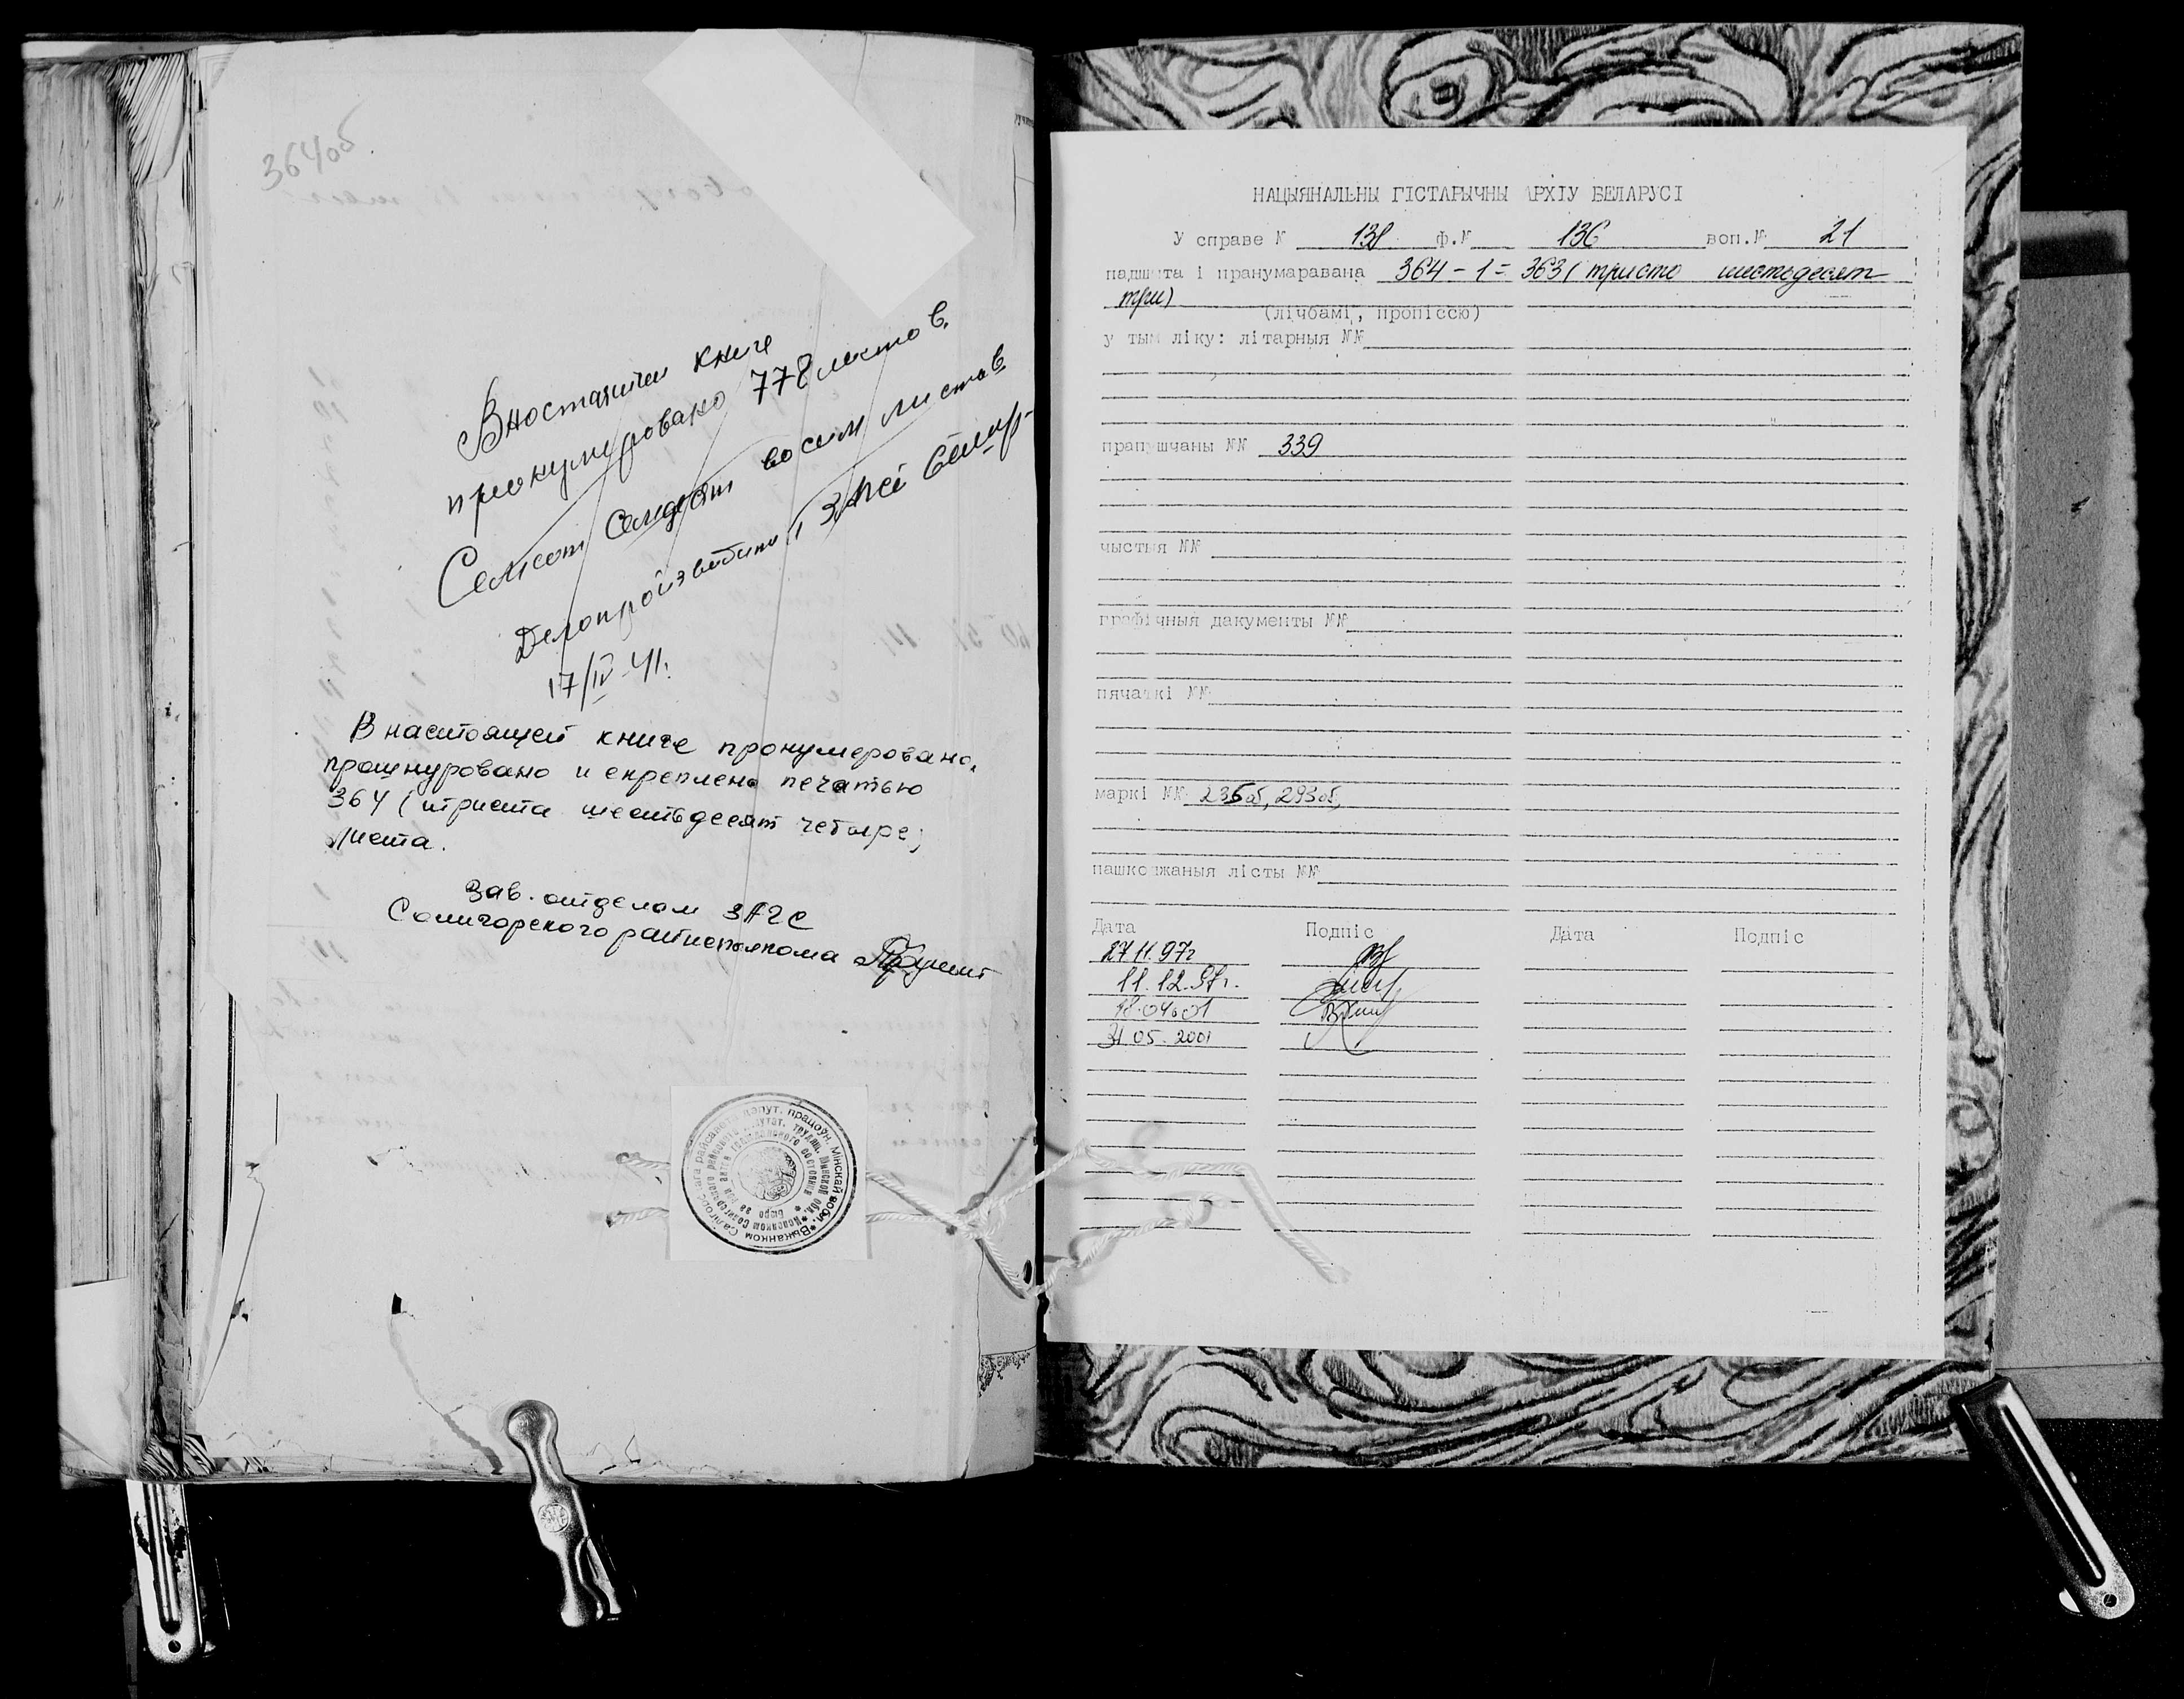 364об
Вностаящи книге
пронумеровано 778 листов.
Семсот семдесят восем листов
Делопроизводит
17/IV-41.
В настоящей книге пронумеровано,
прошнуровано и скреплено печатью
364 (триста шестьдесят четыре)
листа.
Зав. отделом ЗАГС
Солигорского райисполкома
НАЦЫЯНАЛЬНЫ ГІСТАРЫЧНЫ АРХІУ БЕЛАРУСІ
У справе № 138 ф.№ 136 воп.№ 21
падшыта і пранумаравана 364 - 1 = 363 (тристо шестьдесят
три)
(лічбамі, пропіссю)
у тым ліку: літарныя №№
прапушчаны №№ 339
чыстыя №№
графічныя дакументы №№
пячаткі №№
маркі №№ 236об, 293об,
пашкоджаныя лісты №№
Дата Подпіс Дата Подпіс
27.11.97г
11.12.97г.
18.04.01
31.05.2001